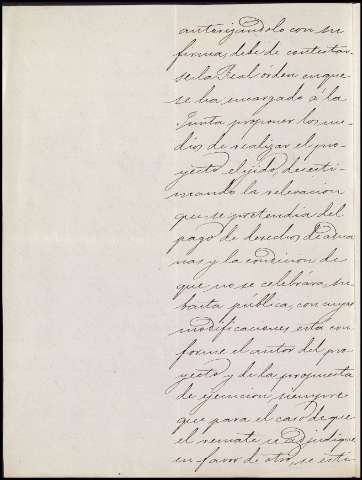 autorizándolo con su
firma, debe de contestar-
se la Real órden en que
se ha encargado á la
Junta proponer los me-
dios de realizar el pro-
yecto elejido, desesti-
mando la relevacion
que se pretendia del
pago de derechos de adua
nas y la condicion de
que no se celebrára su-
basta pública, con cuyas
modificaciones está con
forme el autor del pro-
yecto y de la propuesta
de ejecucion, siempre
que para el caso de que
el remate se adjudique
en favor de otro, se esti-